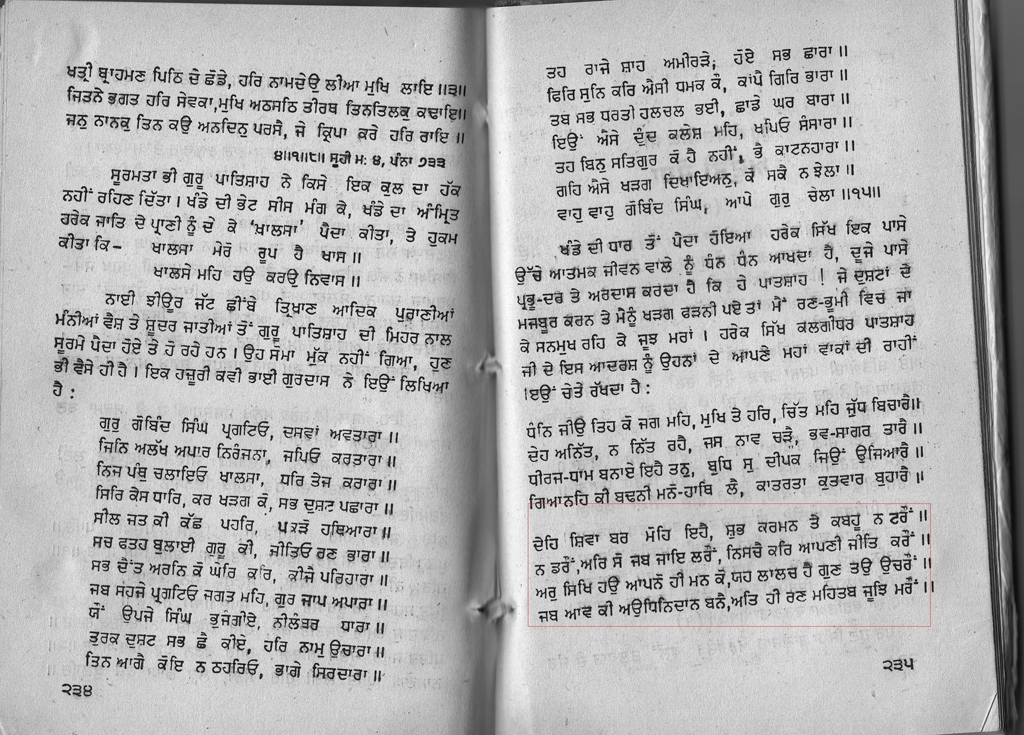 ਖਤ੍ਰੀ ਬ੍ਰਾਹਮਣ ਪਿਠਿ ਦੇ ਛੋਡੇ, ਹਰਿ ਨਾਮਦੇਉ ਲੀਆ ਮੁਖਿ ਲਾਇ ॥੩॥
ਜਿਤਨੇ ਭਗਤ ਹਰਿ ਸੇਵਕਾ, ਮੁਖਿ ਅਠਸਠਿ ਤੀਰਥ ਤਿਨ ਤਿਲਕੁ ਕਢਾਇ॥
ਜਨੁ ਨਾਨਕੁ ਤਿਨ ਕਉ ਅਨਦਿਨੁ ਪਰਸੈ, ਜੇ ਕ੍ਰਿਪਾ ਕਰੇ ਹਰਿ ਰਾਇ ॥
੪॥੧॥੮॥ ਸੂਹੀ ਮ: ੪, ਪੰਨਾ ੭੩੩
ਸੂਰਮਤਾ ਭੀ ਗੁਰੂ ਪਾਤਿਸ਼ਾਹ ਨੇ ਕਿਸੇ ਇਕ ਕੁਲ ਦਾ ਹੱਕ
ਨਹੀਂ ਰਹਿਣ ਦਿੱਤਾ। ਖੰਡੇ ਦੀ ਭੇਟ ਸੀਸ ਮੰਗ ਕੇ, ਖੰਡੇ ਦਾ ਅੰਮ੍ਰਿਤ
ਹਰੇਕ ਜਾਤਿ ਦੇ ਪ੍ਰਾਣੀ ਨੂੰ ਦੇ ਕੇ 'ਖ਼ਾਲਸਾ' ਪੈਦਾ ਕੀਤਾ, ਤੇ ਹੁਕਮ
ਕੀਤਾ ਕਿ— ਖਾਲਸਾ ਮੇਰੋ ਰੂਪ ਹੈ ਖਾਸ ॥
ਖਾਲਸੇ ਮਹਿ ਹਉ ਕਰਉ ਨਿਵਾਸ ॥
ਨਾਈ ਝੀਊਰ ਜੱਟ ਛੀਂਬੇ ਤ੍ਰਿਖਾਣ ਆਦਿਕ ਪੁਰਾਣੀਆਂ
ਮੰਨੀਆਂ ਵੈਸ਼ ਤੇ ਸ਼ੂਦਰ ਜਾਤੀਆਂ ਤੋਂ ਗੁਰੂ ਪਾਤਿਸ਼ਾਹ ਦੀ ਮਿਹਰ ਨਾਲ
ਸੂਰਮੇ ਪੈਦਾ ਹੋਏ ਤੇ ਹੋ ਰਹੇ ਹਨ। ਉਹ ਸੋਮਾ ਮੁੱਕ ਨਹੀਂ ਗਿਆ, ਹੁਣ
ਭੀ ਵੈਸੇ ਹੀ ਹੈ। ਇਕ ਹਜ਼ੂਰੀ ਕਵੀ ਭਾਈ ਗੁਰਦਾਸ ਨੇ ਇਉਂ ਲਿਖਿਆ
ਹੈ :
ਗੁਰੂ ਗੋਬਿੰਦ ਸਿੰਘ ਪ੍ਰਗਟਿਓ, ਦਸਵਾਂ ਅਵਤਾਰਾ ॥
ਜਿਨਿ ਅਲਖ ਅਪਾਰ ਨਿਰੰਜਨਾ, ਜਪਿਓ ਕਰਤਾਰਾ ॥
ਨਿਜ ਪੰਥੁ ਚਲਾਇਓ ਖਾਲਸਾ, ਧਰਿ ਤੇਜ ਕਰਾਰਾ ॥
ਸਿਰਿ ਕੇਸ ਧਾਰਿ, ਕਰ ਖੜਗ ਕੋ, ਸਭ ਦੁਸ਼ਟ ਪਛਾਰਾ ॥
ਸੀਲ ਜਤ ਕੀ ਕੱਛ ਪਹਰਿ, ਪਕੜੋ ਹਥਿਆਰਾ ॥
ਸਚ ਫਤਹ ਬੁਲਾਈ ਗੁਰੂ ਕੀ, ਜੀਤਿਓ ਰਣ ਭਾਰਾ ॥
ਸਭ ਦੈਤ ਅਰਨਿ ਕੋ ਘੇਰਿ ਕਰਿ, ਕੀਜੈ ਪਰਿਹਾਰਾ ॥
ਜਬ ਸਹਜੇ ਪ੍ਰਗਟਿਓ ਜਗਤ ਮਹਿ, ਗੁਰ ਜਾਪ ਅਪਾਰਾ ॥
ਯੋਂ ਉਪਜੇ ਸਿੰਘ ਭੁਜੰਗੀਏ, ਨੀਲੰਬਰ ਧਾਰਾ ॥
ਤੁਰਕ ਦੁਸ਼ਟ ਸਭ ਛੈ ਕੀਏ, ਹਰਿ ਨਾਮੁ ਉਚਾਰਾ ॥
ਤਿਨ ਆਗੈ ਕੋਇ ਨ ਠਹਰਿਓ, ਭਾਗੇ ਸਿਰਦਾਰਾ ॥
੨੩੪
ਤਹ ਰਾਜੇ ਸ਼ਾਹ ਅਮੀਰੜੇ; ਹੋਏ ਸਭ ਛਾਰਾ ॥
ਫਿਰਿ ਸੁਨਿ ਕਰਿ ਐਸੀ ਧਮਕ ਕੌ, ਕਾਂਪੈ ਗਿਰਿ ਭਾਰਾ ॥
ਤਬ ਸਭ ਧਰਤੀ ਹਲਚਲ ਭਈ, ਛਾਡੇ ਘਰ ਬਾਰਾ ॥
ਇਉਂ ਐਸੇ ਦੁੰਦ ਕਲੇਸ਼ ਮਹਿ, ਖਪਿਓ ਸੰਸਾਰਾ ॥
ਤਹ ਬਿਨੁ ਸਤਿਗੁਰ ਕੋ ਹੈ ਨਹੀਂ, ਭੈ ਕਾਟਨਹਾਰਾ ॥
ਗਹਿ ਐਸੇ ਖੜਗ ਦਿਖਾਇਅਨੁ, ਕੋ ਸਕੈ ਨ ਝੇਲਾ ॥
ਵਾਹੁ ਵਾਹੁ ਗੋਬਿੰਦ ਸਿੰਘ, ਆਪੇ ਗੁਰੁ ਚੇਲਾ ॥੧੫॥
ਖੰਡੇ ਦੀ ਧਾਰ ਤੋਂ ਪੈਦਾ ਹੋਇਆ ਹਰੇਕ ਸਿੱਖ ਇਕ ਪਾਸੇ
ਉੱਚੇ ਆਤਮਕ ਜੀਵਨ ਵਾਲੇ ਨੂੰ ਧੰਨ ਧੰਨ ਆਖਦਾ ਹੈ, ਦੂਜੇ ਪਾਸੇ
ਪ੍ਰਭੂ-ਦਰ ਤੇ ਅਰਦਾਸ ਕਰਦਾ ਹੈ ਕਿ ਹੇ ਪਾਤਸ਼ਾਹ ! ਜੇ ਦੁਸ਼ਟਾਂ ਦੇ
ਮਜਬੂਰ ਕਰਨ ਤੇ ਮੈਨੂੰ ਖੜਗ ਫੜਨੀ ਪਏ ਤਾਂ ਮੈਂ ਰਣ-ਭੂਮੀ ਵਿਚ ਜਾ
ਕੇ ਸਨਮੁਖ ਰਹਿ ਕੇ ਜੂਝ ਮਰਾਂ। ਹਰੇਕ ਸਿੱਖ ਕਲਗੀਧਰ ਪਾਤਸ਼ਾਹ
ਜੀ ਦੇ ਇਸ ਆਦਰਸ਼ ਨੂੰ ਉਹਨਾਂ ਦੇ ਆਪਣੇ ਮਹਾਂ ਵਾਕਾਂ ਦੀ ਰਾਹੀਂ
ਇਉਂ ਚੇਤੇ ਰੱਖਦਾ ਹੈ :
ਧੰਨਿ ਜੀਉ ਤਿਹ ਕੋ ਜਗ ਮਹਿ, ਮੁਖਿ ਤੇ ਹਰਿ, ਚਿੱਤ ਮਹਿ ਜੁੱਧ ਬਿਚਾਰੈ॥
ਦੇਹ ਅਨਿੱਤ, ਨ ਨਿੱਤ ਰਹੈ, ਜਸ ਨਾਵ ਚੜੈ, ਭਵ-ਸਾਗਰ ਤਾਰੈ ॥
ਧੀਰਜ-ਧਾਮ ਬਨਾਏ ਇਹੈ ਤਨੁ, ਬੁਧਿ ਸੁ ਦੀਪਕ ਜਿਉਂ ਉਜਿਆਰੈ ॥
ਗਿਆਨਹਿ ਕੀ ਬਢਨੀ ਮਨੋ-ਹਾਥਿ ਲੈ, ਕਾਤਰਤਾ ਕੁਤਵਾਰ ਬੁਹਾਰੈ ॥
ਦੇਹਿ ਸ਼ਿਵਾ ਬਰ ਮੋਹਿ ਇਹੈ, ਸ਼ੁਭ ਕਰਮਨ ਤੇ ਕਬਹੂ ਨ ਟਰੌਂ ॥
ਨ ਡਰੌਂ, ਅਰਿ ਸੋ ਜਬ ਜਾਇ ਲਰੌਂ, ਨਿਸਚੈ ਕਰਿ ਆਪਣੀ ਜੀਤਿ ਕਰੌਂ ॥
ਅਰੁ ਸਿਖਿ ਹਉ ਆਪਨੇ ਹੀ ਮਨ ਕੋ, ਯਹ ਲਾਲਚ ਹੈ ਗੁਣ ਤਉ ਉਚਰੌਂ ॥
ਜਬ ਆਵ ਕੀ ਅਉਧਿ ਨਿਦਾਨ ਬਨੈ, ਅਤਿ ਹੀ ਰਣ ਮਹਿ ਤਬ ਜੂਝਿ ਮਰੌਂ ॥
੨੩੫